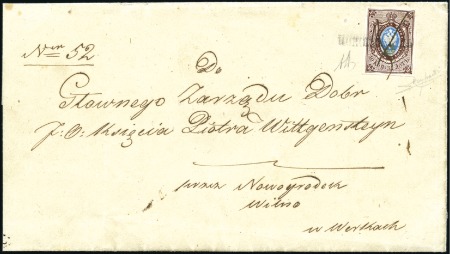 Nr 52
Do
Głownego Zarządu Dobr
J: O: Księcia Piotra Wittgensteyn
przez Nowogrodek
Wilno
w Werkach